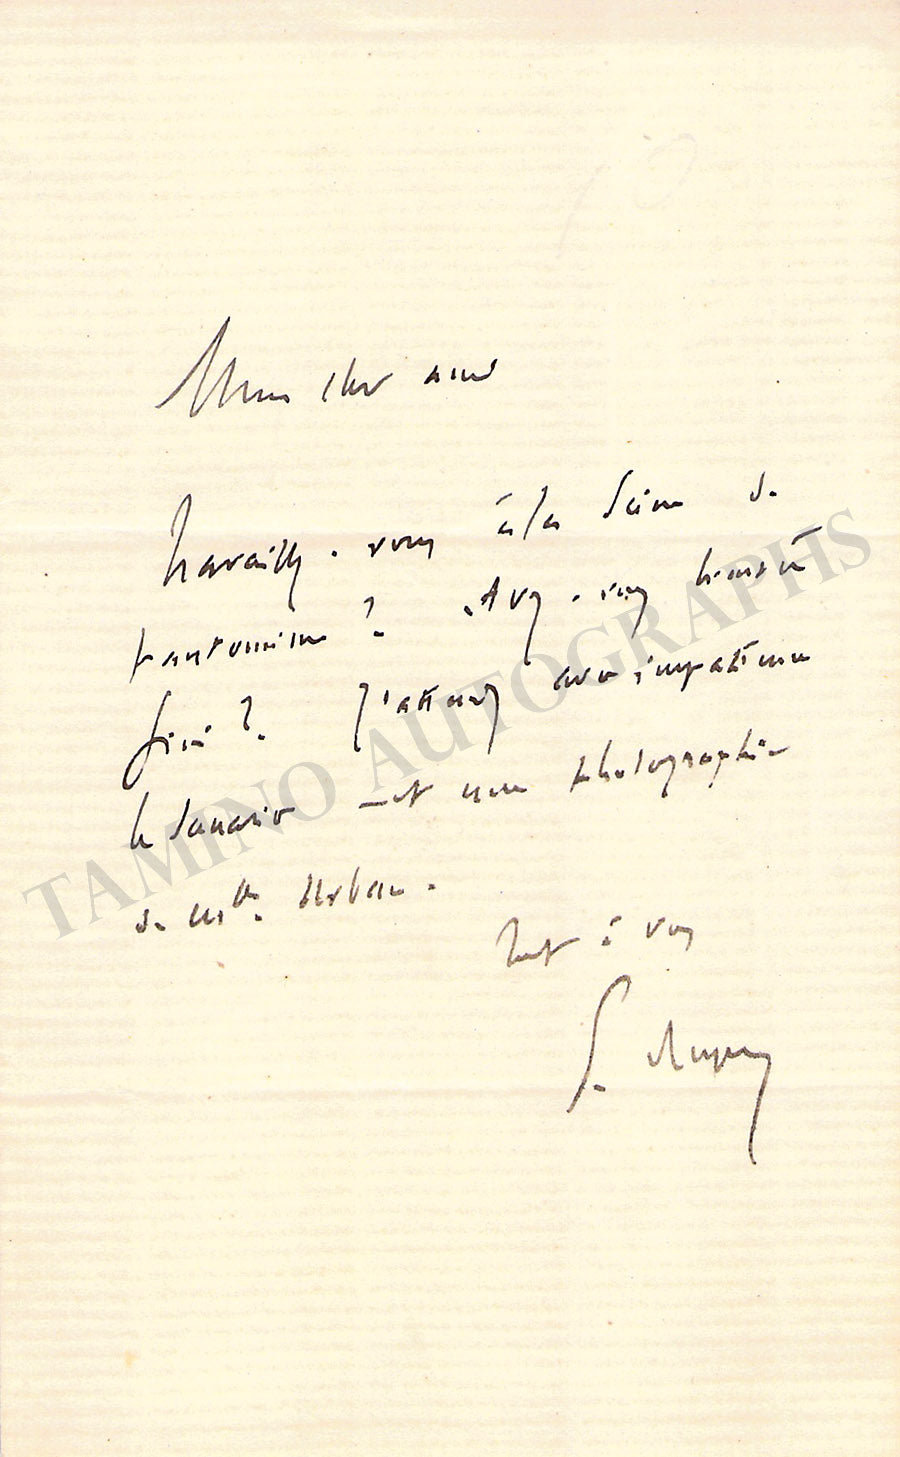 Mon cher ami
travaillez-vous à la scène de
pantomime ? Avez-vous bientôt
fini ? J'attends avec impatience
le scénario et une photographie
de Mlle Urban.
Tout à vous
TAMINO AUTOGRAPHS